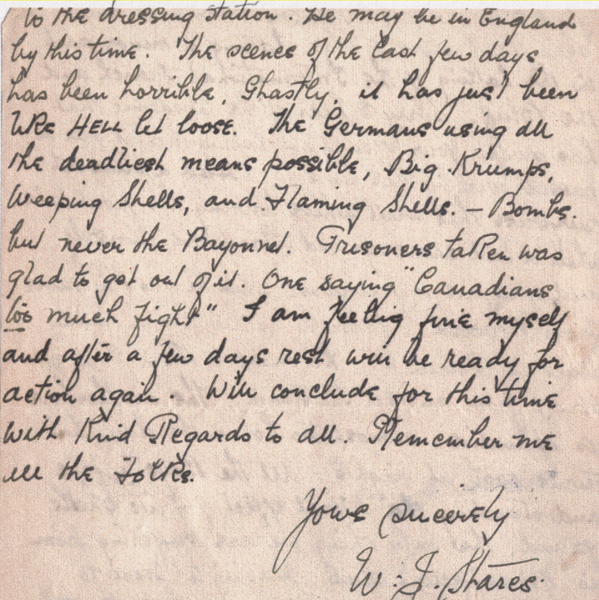 to the dressing station. He may be in England
by this time. The scenes of the last few days
has been horrible, Ghastly, it has just been
like HELL let loose. The Germans using all
the deadliest means possible, Big Krumps,
Weeping Shells, and Flaming Shells. – Bombs.
but never the Bayonnet. Prisoners taken was
glad to get out of it. One saying "Canadians
too much fight" I am feeling fine myself
and after a few days rest will be ready for
action again. Will conclude for this time
with Kind Regards to all. Remember me
the Folks.
Yours sincerely
W. J. Shares.